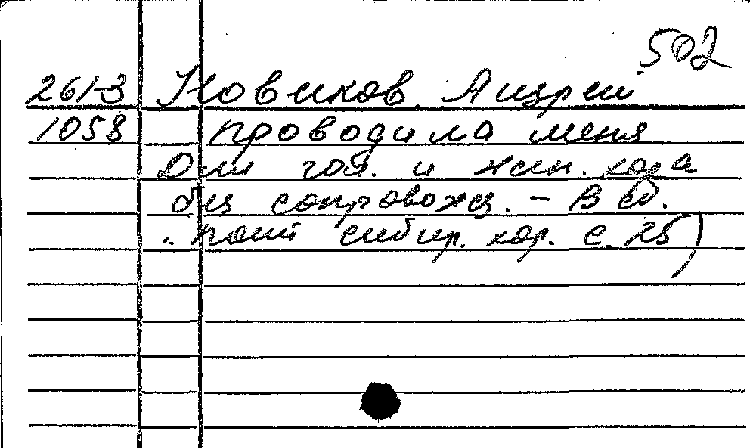 502
261-3 Новиков Андрей
1058 проводила меня
Для гол. и жен. хора
без сопровожд. - В сб.
"Поет сибир. хор. с. 25)